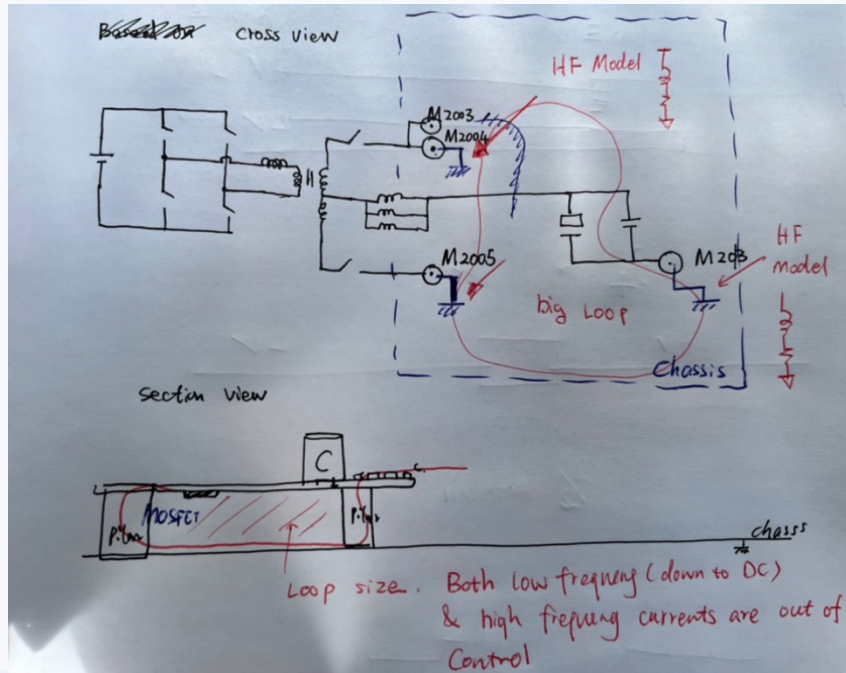 Cross view
HF Model
M2003
M2004
M2005
M203
HF
Model
big Loop
Chassis
Section view
C
MOSFET
Pillar
chasss
Loop size. Both low frequeng (down to DC)
& high frequeng currents are out of
Control